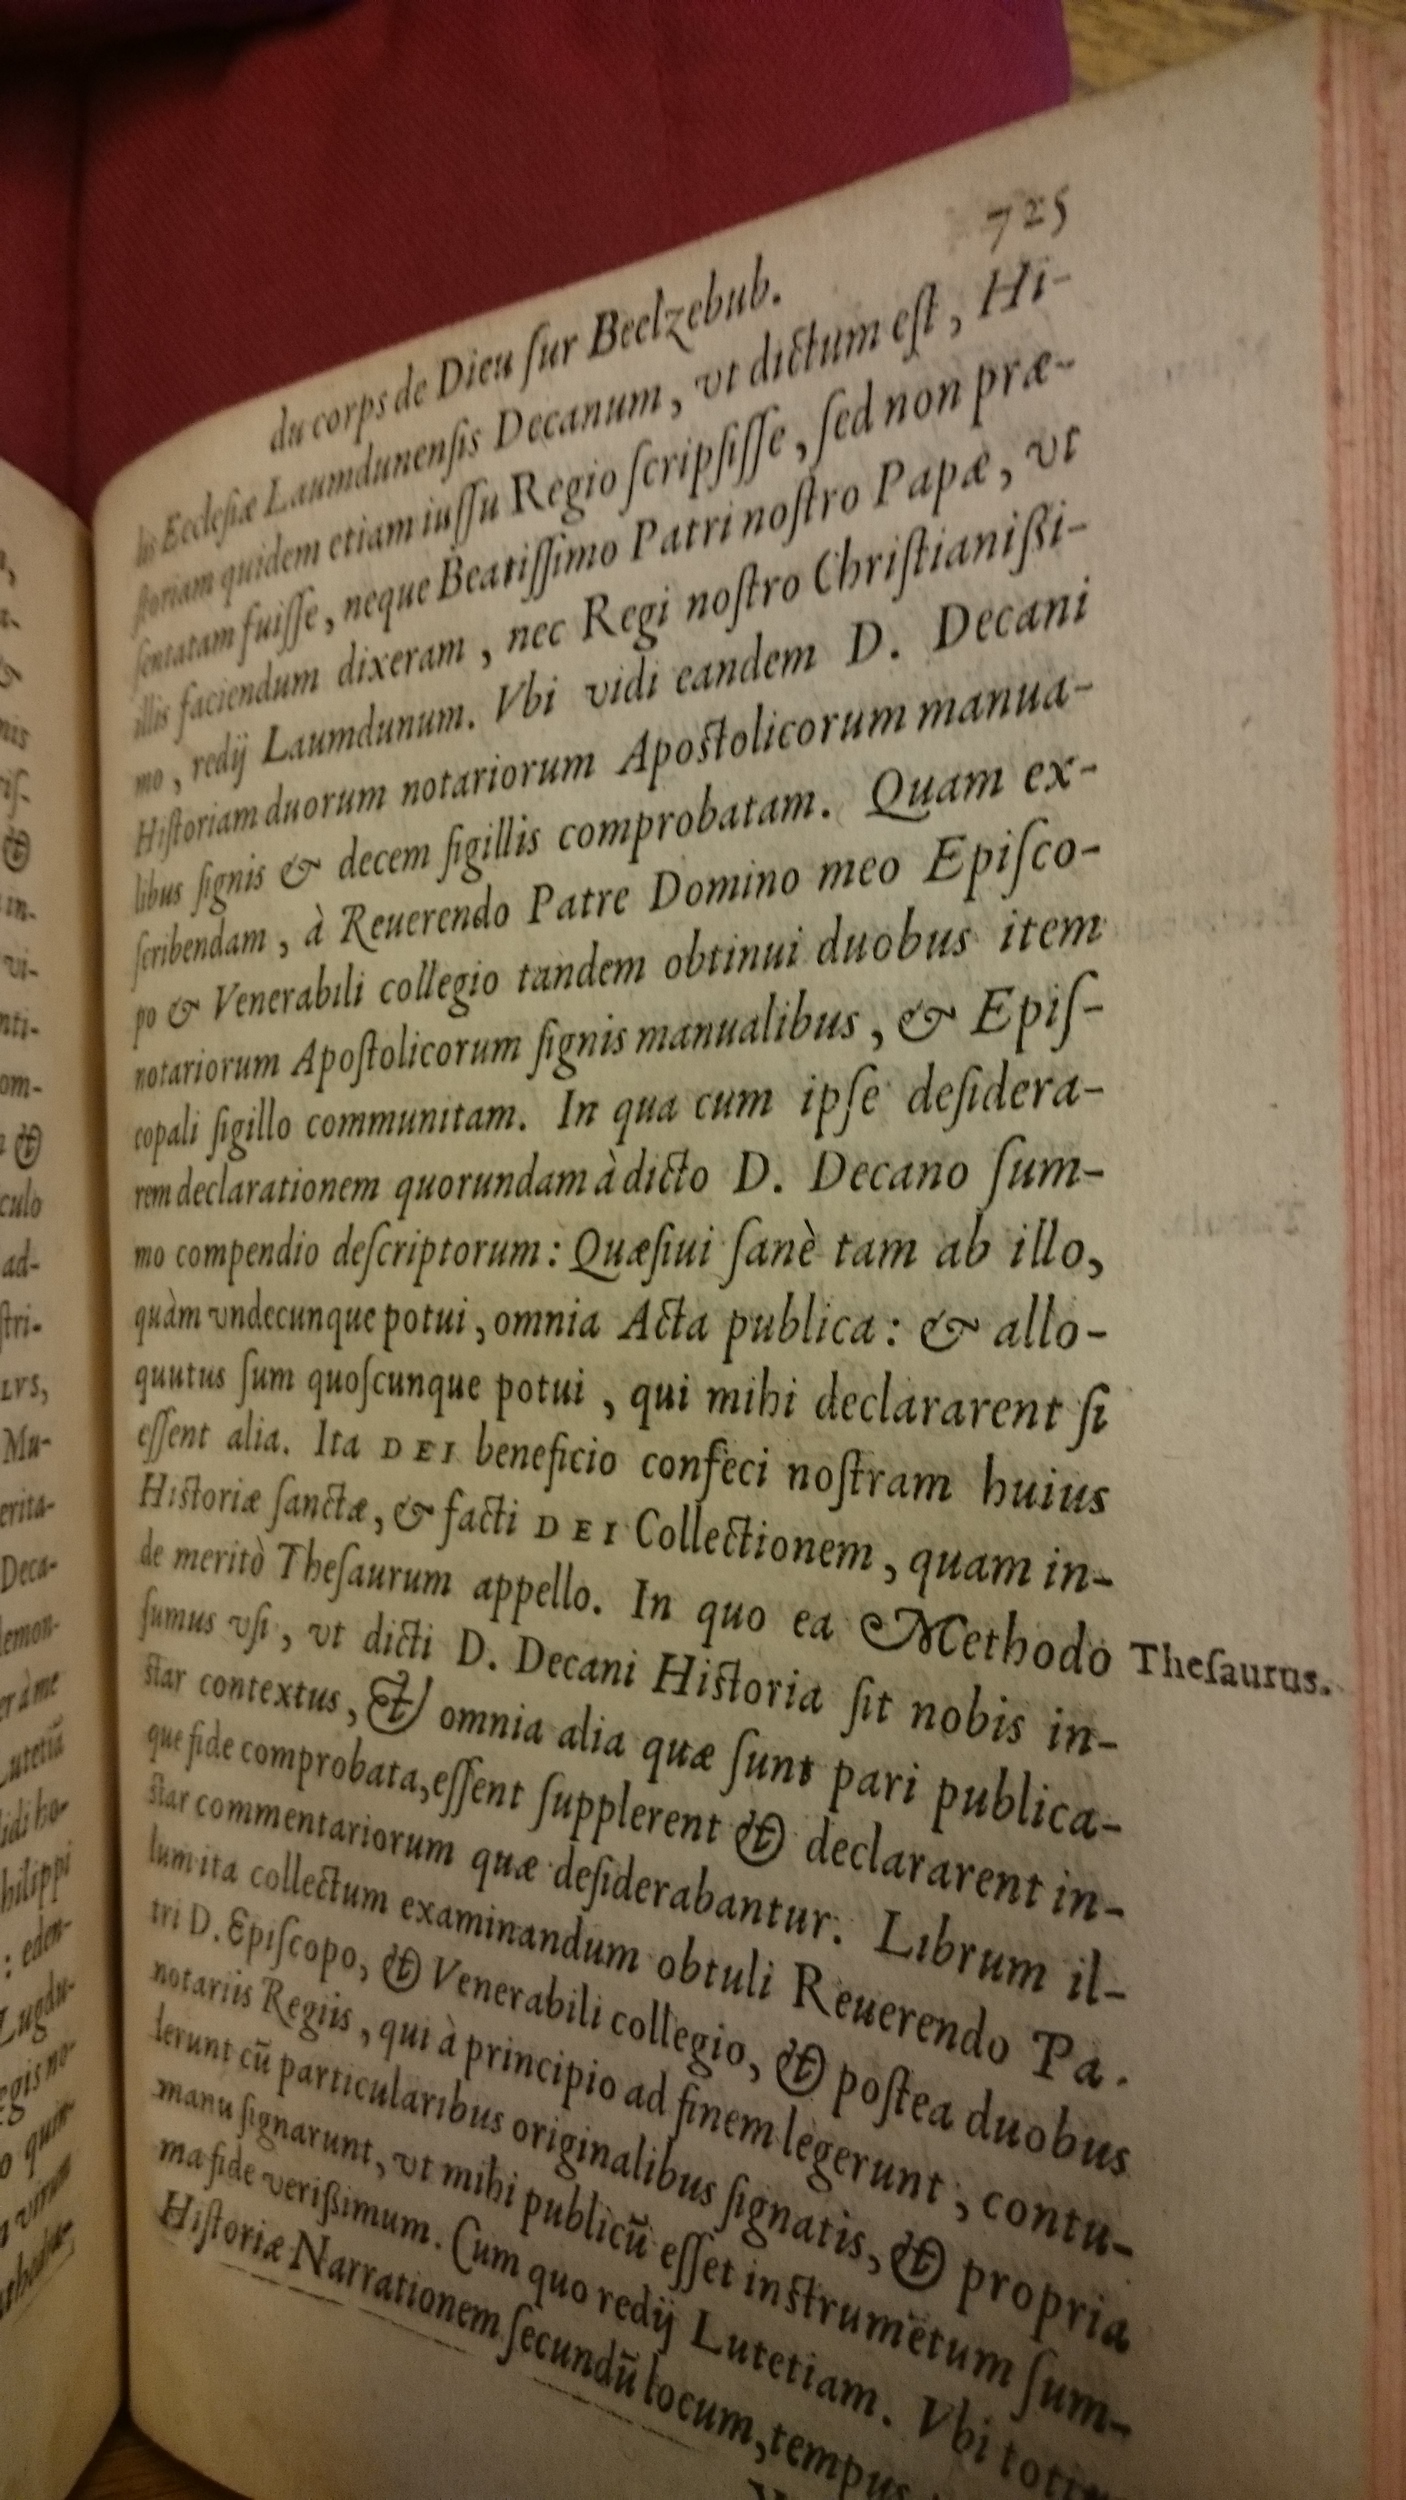 725
du corps de Dieu ſur Beelzebub.
lis Eccleſiæ Laumdunenſis Decanum, vt dictum eſt, Hi-
ſtoriam quidem etiam iuſſu Regio ſcripſiſſe, ſed non præ-
ſentatam fuiſſe, neque Beatiſſimo Patri noſtro Papæ, vt
illis faciendum dixeram, nec Regi noſtro Chriſtianißi-
mo, redij Laumdunum. Vbi vidi eandem D. Decani
Hiſtoriam duorum notariorum Apoſtolicorum manua-
libus ſignis & decem ſigillis comprobatam. Quam ex-
ſcribendam, à Reuerendo Patre Domino meo Epiſco-
po & Venerabili collegio tandem obtinui duobus item
notariorum Apoſtolicorum ſignis manualibus, & Epiſ-
copali ſigillo communitam. In qua cum ipſe deſidera-
rem declarationem quorundam à dicto D. Decano ſum-
mo compendio deſcriptorum: Quæſiui ſanè tam ab illo,
quàm vndecunque potui, omnia Acta publica: & allo-
quutus ſum quoſcunque potui, qui mihi declararent ſi
eſſent alia. Ita DEI beneficio confeci noſtram huius
Hiſtoriæ ſanctæ, & facti DEI Collectionem, quam in-
de meritò Theſaurum appello. In quo ea Methodo
Theſaurus.
ſumus vſi, vt dicti D. Decani Hiſtoria ſit nobis in-
ſtar contextus, & omnia alia quæ ſunt pari publica-
que fide comprobata, eſſent ſupplerent & declararent in-
ſtar commentariorum quæ deſiderabantur. Librum il-
lum ita collectum examinandum obtuli Reuerendo Pa-
tri D. Epiſcopo, & Venerabili collegio, & poſtea duobus
notariis Regiis, qui à principio ad finem legerunt, contu-
lerunt cū particularibus originalibus ſignatis, & propria
manu ſignarunt, vt mihi publicū eſſet inſtrumētum ſum-
ma fide verißimum. Cum quo redij Lutetiam. Vbi
Hiſtoriæ Narrationem ſecundū locum, tempus